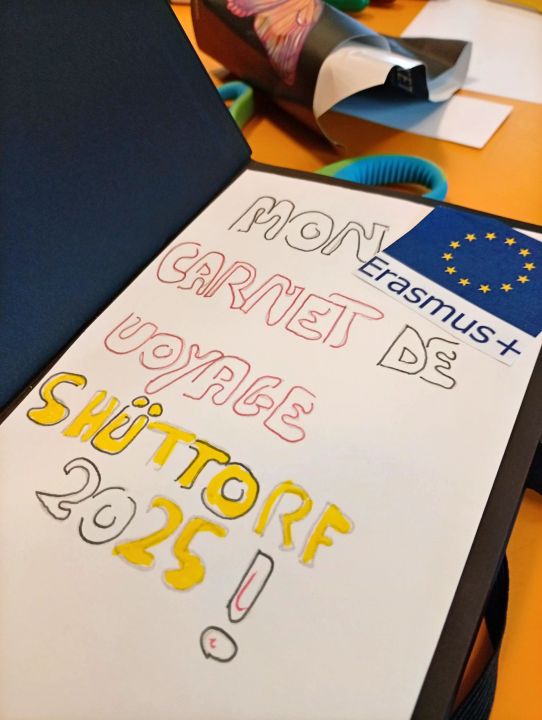 MON
CARNET DE
VOYAGE
SHÜTTORF
2025 !
Erasmus+